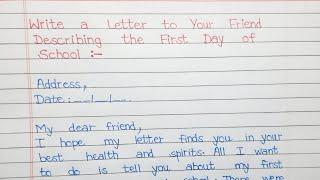 Write a Letter to Your Friend
Describing the First Day of
School :-
Address,
Date:__/__/__.
My dear friend,
I hope my letter finds you in your
best health and spirits. All I want
to do is tell you about my first
school. There were